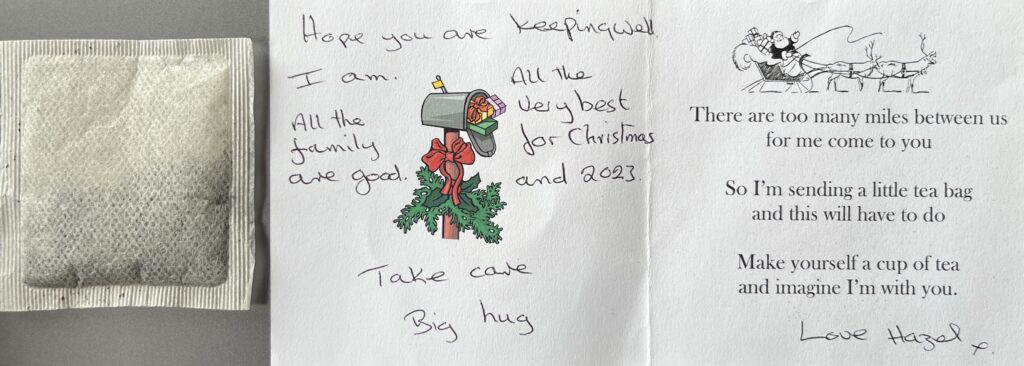 Hope you are keepingwell.
I am.
All the
family
are good.
All the
very best
for Christmas
and 2023.
Take care
Big hug
There are too many miles between us
for me come to you
So I'm sending a little tea bag
and this will have to do
Make yourself a cup of tea
and imagine I'm with you.
Love Hazel x.